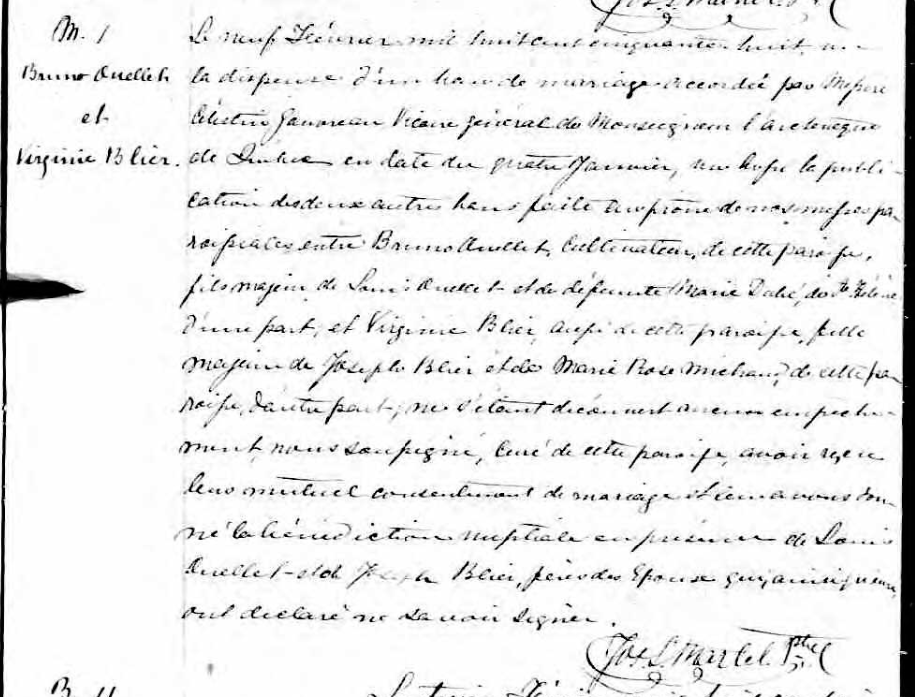 Jos. L. Martel Ptre
M. 1
Bruno Ouellet
et
Virginie Blier.
Le neuf Février mil huit cent cinquante huit, vu
la dispense d'un banc de mariage accordée par Messire
Célestin Gauvreau Vicaire général de Monseigneur l'archevêque
de Québec en date du quatre Janvier, vu aussi la publi-
cation des deux autres bans faite au prône de nos messes pa-
roissiales entre Bruno Ouellet, Cultivateur, de cette paroisse,
fils majeur de Louis Ouellet et de défunte Marie Dubé, de Ste Hélène
d'une part, et Virginie Blier, aussi de cette paroisse, fille
majeure de Joseph Blier et de Marie Rose Michaud, de cette pa-
roisse, d'autre part; ne s'étant découvert aucun empêche-
ment, nous soussigné, Curé de cette paroisse, avons reçu
leur mutuel consentement de mariage et leur avons don-
né la bénédiction nuptiale en présence de Louis
Ouellet et de Joseph Blier, pères des Epoux qui, ainsi que eux,
ont déclaré ne savoir signer.
Jos. L. Martel Ptre